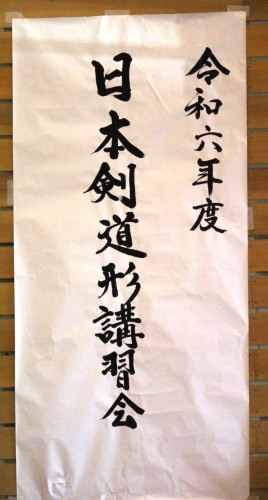 令和六年度
日本剣道形講習会